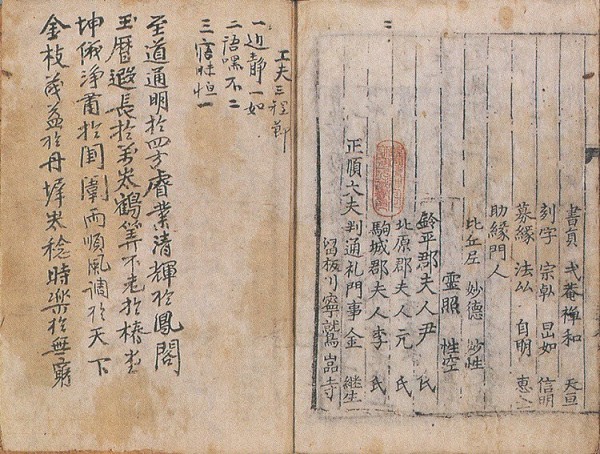 書員 戈菴禅和 天亘
刻字 宗卓 旵如 信明
募縁 法厸 自明 惠
助縁門人
比丘尼 妙德 妙性
靈照 性空
鈴平郡夫人尹 氏
北原郡夫人元 氏
駒城郡夫人李 氏
正順大夫判通礼門事金 継生
留板川寧鷲嵓寺
工夫三程節
一 静一如
二 語嘿不二
三 寤寐恒一
至道通明於四方睿業清輝於鳳閣
玉曆遐長於鶴筭不老於椿
坤儀浄肅於閨闈雨順風調於天下
金枝茂益於丹墀稔時樂於無窮